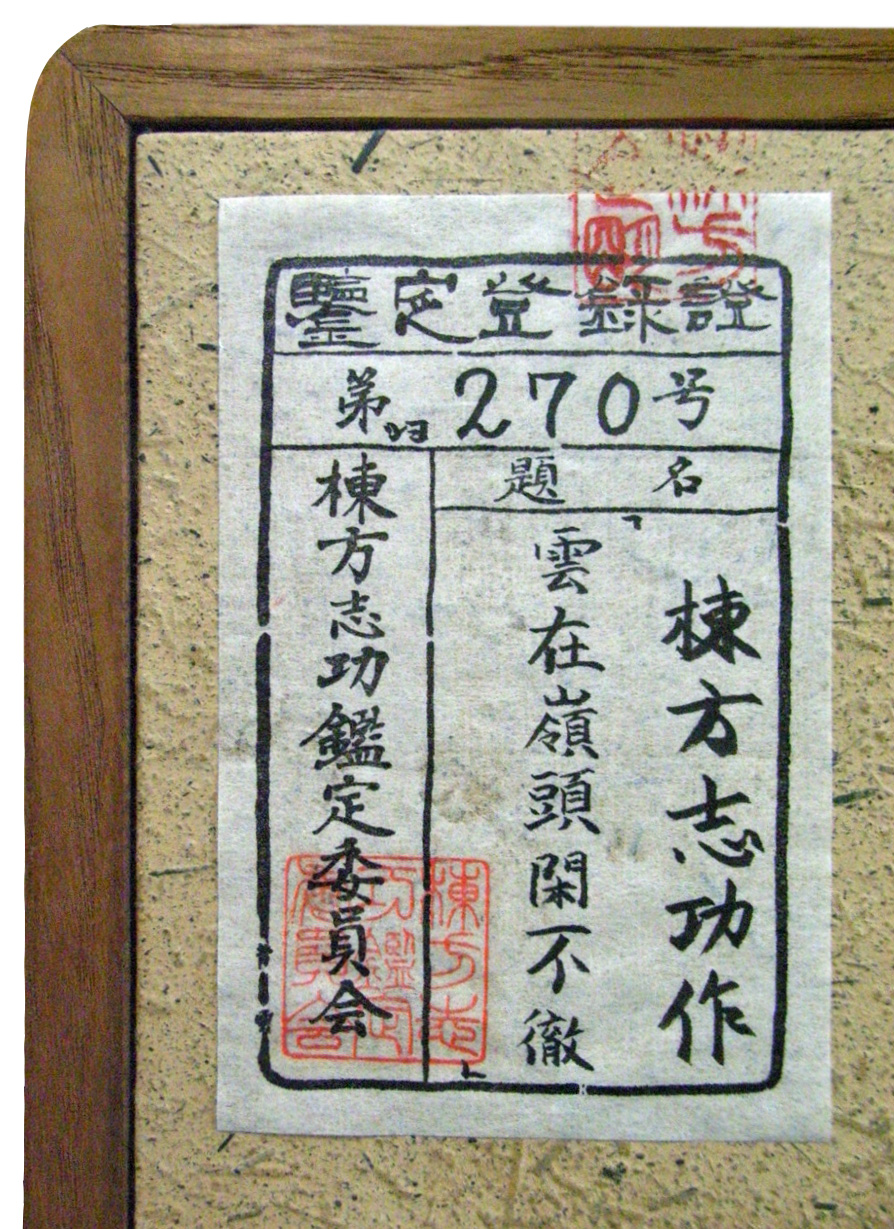 鑒定登錄證
第ヨ270号
題名
棟方志功作
「雲在嶺頭閑不徹」
棟方志功鑑定委員会
棟方志功鑑定委員会